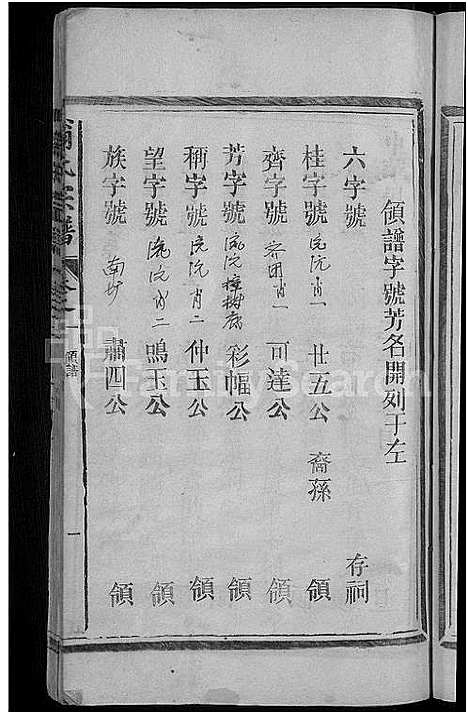 領譜字號芳名開列于左
六字號 存祠
桂字號 肖一 廿五公 裔孫 領
齊字號 齐团肖一 可達公 領
芳字號 彩幅公 領
稱字號 肖二 仲玉公 領
望字號 肖二 鳴玉公 領
族字號 南 肅四公 領
氏宗譜
領譜
一
FamilySearch